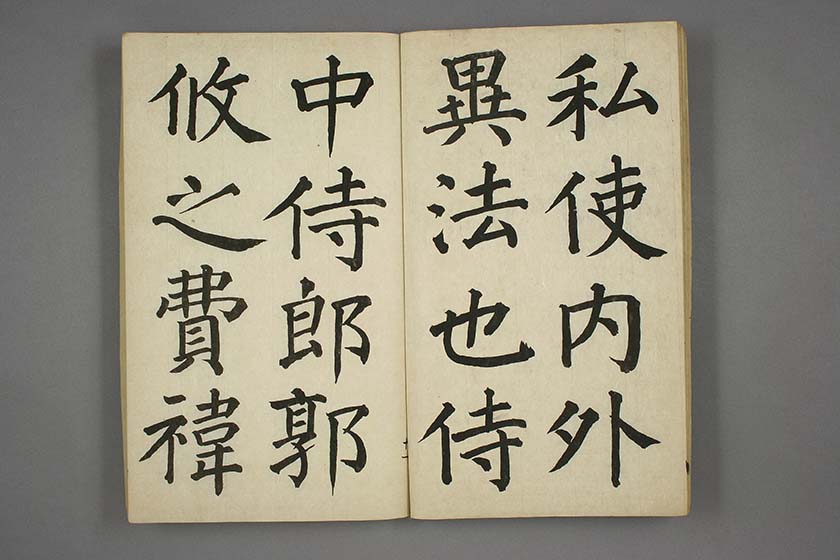 私使内外
異法也侍
中侍郎郭
攸之費禕